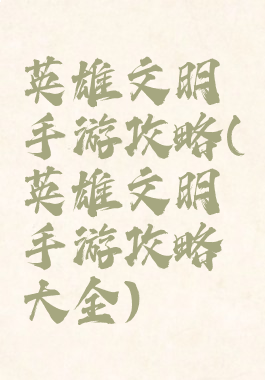 英雄文明
手游攻略(
英雄文明
手游攻略
大全)